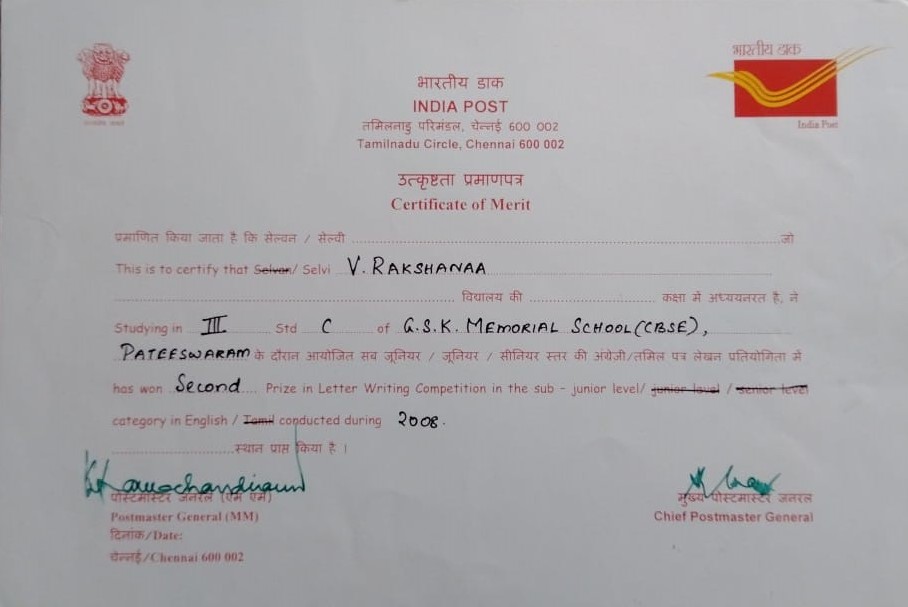 भारतीय डाक
भारतीय डाक
INDIA POST
India Post
तमिलनाडु परिमंडल, चेन्नई 600 002
Tamilnadu Circle, Chennai 600 002
उत्कृष्टता प्रमाणपत्र
Certificate of Merit
प्रमाणित किया जाता है कि सेल्वन / सेल्वी ........ जो
This is to certify that Selvan/ Selvi V. RAKSHANAA
........ विद्यालय की ........ कक्षा में अध्ययनरत है, ने
Studying in III Std C of G.S.K. MEMORIAL SCHOOL(CBSE),
PATEESWARAM के दौरान आयोजित सब जूनियर / जूनियर / सीनियर स्तर की अंग्रेजी/तमिल पत्र लेखन प्रतियोगिता में
has won Second Prize in Letter Writing Competition in the sub - junior level/ junior level / senior level
category in English / Tamil conducted during 2008.
........ स्थान प्राप्त किया है ।
पोस्टमास्टर जनरल (एम एम)
मुख्य पोस्टमास्टर जनरल
Postmaster General (MM)
Chief Postmaster General
दिनांक/Date:
चेन्नई/Chennai 600 002